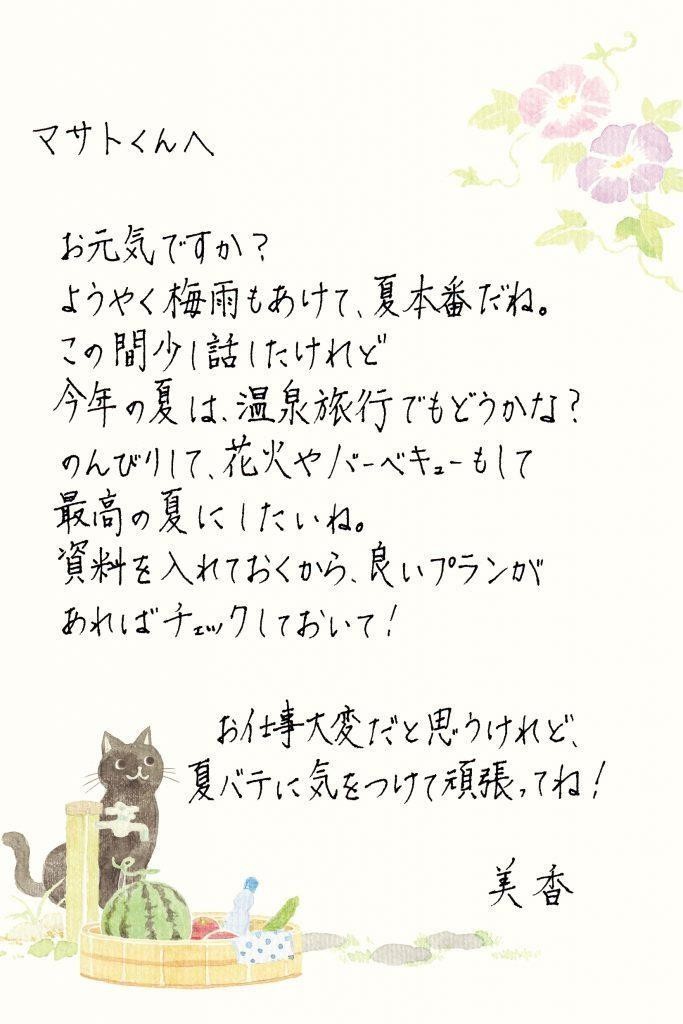 マサトくんへ
お元気ですか？
ようやく梅雨もあけて、夏本番だね。
この間少し話したけれど
今年の夏は、温泉旅行でもどうかな？
のんびりして、花火やバーベキューもして
最高の夏にしたいね。
資料を入れておくから、良いプランが
あればチェックしておいて！
お仕事大変だと思うけれど、
夏バテに気をつけて頑張ってね！
美香